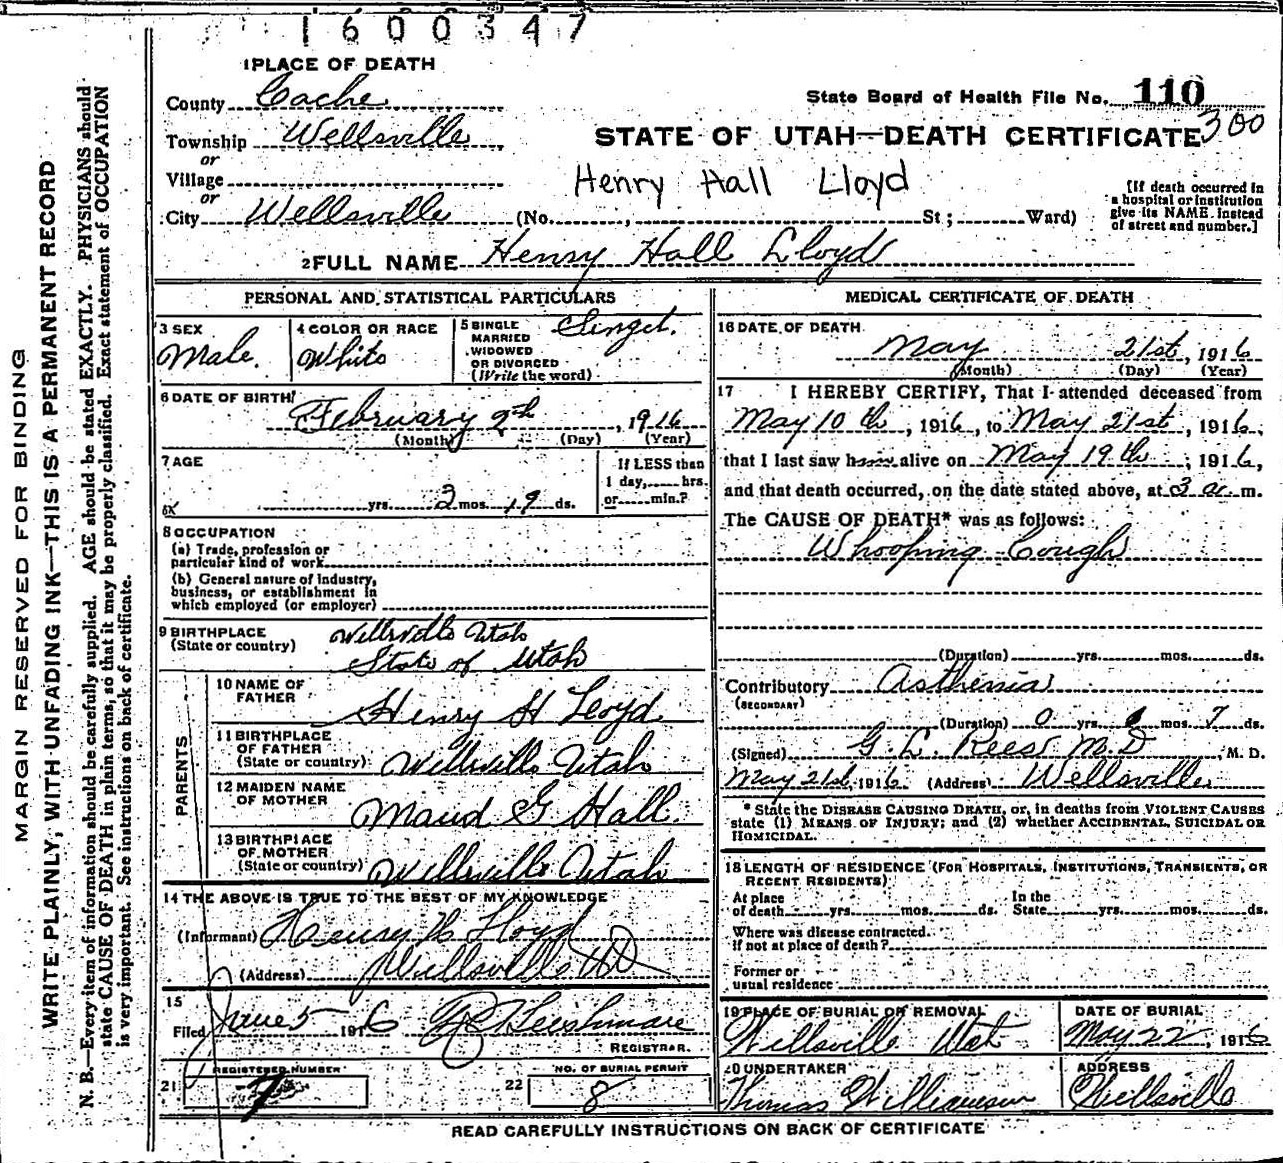 1600347
1 PLACE OF DEATH
County Cache
State Board of Health File No. 110
Township Wellsville
STATE OF UTAH—DEATH CERTIFICATE 300
or
Village
Henry Hall Lloyd
or
City Wellsville (No. , St; Ward)
[If death occurred in
a hospital or institution
give its NAME instead
of street and number.]
2 FULL NAME Henry Hall Lloyd
PERSONAL AND STATISTICAL PARTICULARS
3 SEX
Male.
4 COLOR OR RACE
White
5 SINGLE
MARRIED
WIDOWED
OR DIVORCED
(Write the word)
Singel.
6 DATE OF BIRTH
February 2th, 1916
(Month) (Day) (Year)
7 AGE
yrs. 2 mos. 19 ds.
If LESS than
1 day, hrs.
or min.?
8 OCCUPATION
(a) Trade, profession or
particular kind of work
(b) General nature of industry,
business, or establishment in
which employed (or employer)
9 BIRTHPLACE
(State or country)
Wellsville Utah
State of Utah
PARENTS
10 NAME OF
FATHER
Henry H Lloyd
11 BIRTHPLACE
OF FATHER
(State or country)
Wellsville Utah
12 MAIDEN NAME
OF MOTHER
Maud G Hall.
13 BIRTHPLACE
OF MOTHER
(State or country)
Wellsville Utah
14 THE ABOVE IS TRUE TO THE BEST OF MY KNOWLEDGE
(Informant) Henry H Lloyd
(Address) Wellsville Ut
15
Filed June 5 1916
REGISTRAR
21 REGISTERED NUMBER
7
22 NO. OF BURIAL PERMIT
8
MEDICAL CERTIFICATE OF DEATH
16 DATE OF DEATH
May 21st, 1916
(Month) (Day) (Year)
17 I HEREBY CERTIFY, That I attended deceased from
May 10th, 1916, to May 21st, 1916,
that I last saw him alive on May 19th, 1916,
and that death occurred, on the date stated above, at 3 a. m.
The CAUSE OF DEATH* was as follows:
Whooping Cough
(Duration) yrs. mos. ds.
Contributory Asthenia
(SECONDARY)
(Duration) 0 yrs. mos. 7 ds.
(Signed) G. L. Rees M.D, M. D.
May 21st, 1916 (Address) Wellsville
* State the DISEASE CAUSING DEATH, or, in deaths from VIOLENT CAUSES
state (1) MEANS OF INJURY; and (2) whether ACCIDENTAL, SUICIDAL OR
HOMICIDAL.
18 LENGTH OF RESIDENCE (FOR HOSPITALS, INSTITUTIONS, TRANSIENTS, OR
RECENT RESIDENTS)
At place
of death yrs. mos. ds.
In the
State yrs. mos. ds.
Where was disease contracted.
if not at place of death?
Former or
usual residence
19 PLACE OF BURIAL OR REMOVAL
Wellsville Utah
DATE OF BURIAL
May 22, 1916
20 UNDERTAKER
Thomas Williamson
ADDRESS
Wellsville
READ CAREFULLY INSTRUCTIONS ON BACK OF CERTIFICATE
MARGIN RESERVED FOR BINDING
WRITE PLAINLY, WITH UNFADING INK—THIS IS A PERMANENT RECORD
N. B.—Every item of information should be carefully supplied. AGE should be stated EXACTLY. PHYSICIANS should
state CAUSE OF DEATH in plain terms, so that it may be properly classified. Exact statement of OCCUPATION
is very important. See instructions on back of certificate.